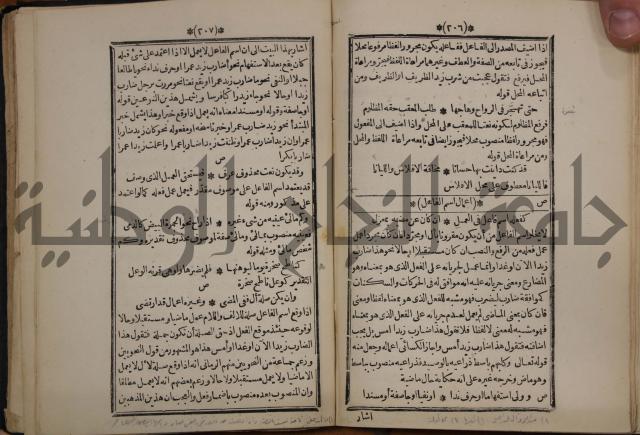 *(٢٠٦)*
اذا اضيف المصدر الى الفاعل ففاعله يكون مجرورا لفظا مرفوعا محلا
فيجوز فى تابعه من الصفة والعطف وغيرهما مراعاة اللفظ فيجر ومراعاة
المحل فيرفع فتقول عجبت من شرب زيد الظريف او الظريف ومن
اتباعه المحل قوله
حتى تهجر فى الرواح وهاجها * طلب المعقب حقه المظلوم
فرفع المظلوم لكونه نعتا للمعقب على المحل واذا اضيف الى المفعول
فهو مجرور لفظا منصوب محلا فيجوز ايضا فى تابعه مراعاة اللفظ والمحل
ومن مراعاة المحل قوله
قد كنت داينت بها حسانا * مخافة الافلاس والليانا
فالليانا معطوف على محل الافلاس
ص *(اعمال اسم الفاعل)* ص
كفعله اسم فاعل فى العمل * ان كان عن مضيه بمعزل
لا يخلو اسم الفاعل من ان يكون مقرونا بال او مجردا فان كان مجردا عمل
عمل فعله من الرفع والنصب ان كان مستقبلا او حالا نحو هذا ضارب
زيدا الآن او غدا وانما عمل لجريانه على الفعل الذى هو بمعناه وهو
المضارع ومعنى جريانه عليه انه موافق له فى الحركات والسكنات
كموافقة ضارب ليضرب فهو مشبه للفعل الذى هو بمعناه لفظا ومعنى
فان كان بمعنى الماضى لم يعمل لعدم جريانه على الفعل الذى هو بمعناه
فهو مشبه له معنى لا لفظا فلا تقول هذا ضارب زيدا امس بل يجب
اضافته فتقول هذا ضارب زيد امس واجاز الكسائى اعماله وجعل منه
قوله تعالى وكلبهم باسط ذراعيه بالوصيد فذراعيه منصوب بباسط
وهو ماض وخرجه غيره على انه حكاية حال ماضية
ص وولى استفهاما او حرف ندا * او نفيا او جا صفة او مسندا
اشار
*(٢٠٧)*
اشار بهذا البيت الى ان اسم الفاعل لا يعمل الا اذا اعتمد على شئ قبله
كان يقع بعد الاستفهام نحو أضارب زيد عمرا او حرف نداء نحو يا طالعا
جبلا او النفى نحو ما ضارب زيد عمرا او يقع نعتا نحو مررت برجل ضارب
زيدا او حالا نحو جاء زيد راكبا فرسا ويشمل هذين النوعين قوله
او جا صفة وقوله او مسندا معناه انه يعمل اذا وقع خبرا وهذا يشمل خبر
المبتدأ نحو زيد ضارب عمرا وخبر ناسخه او مفعوله نحو كان زيد ضاربا
عمرا وان زيدا ضارب عمرا وظننت زيدا ضاربا عمرا واعلمت زيدا عمرا
ضاربا بكرا
ص
وقد يكون نعت محذوف عرف * فيستحق العمل الذى وصف
قد يعتمد اسم الفاعل على موصوف مقدر فيعمل عمل فعله كما لو اعتمد
على مذكور ومنه قوله
وكم مالئ عينيه من شئ غيره * اذا راح نحو الجمرة البيض كالدمى
فعينيه منصوب بمالئ ومالئ صفة لموصوف محذوف تقديره وكم
شخص مالئ ومثله قوله
كناطح صخرة يوما ليوهنها * فلم يضرها واوهى قرنه الوعل
التقدير كوعل ناطح صخرة
ص
وان يكن صلة ال ففى المضى * وغيره اعماله قد ارتضى
اذا وقع اسم الفاعل صلة للالف واللام عمل ماضيا ومستقبلا وحالا
لوقوعه حينئذ موقع الفعل اذ حق الصلة ان تكون جملة فتقول هذا
الضارب زيدا الآن او غدا او امس هذا هو المشهور من قول النحويين
وزعم جماعة من النحويين منهم الرمانى انه اذا وقع صلة لال لا يعمل
الا ماضيا ولا يعمل مستقبلا ولا حالا وزعم بعضهم انه لا يعمل مطلقا
وان المنصوب بعده منصوب باضمار فعل والعجب ان هذين المذهبين
جامعة النجاح الوطنية